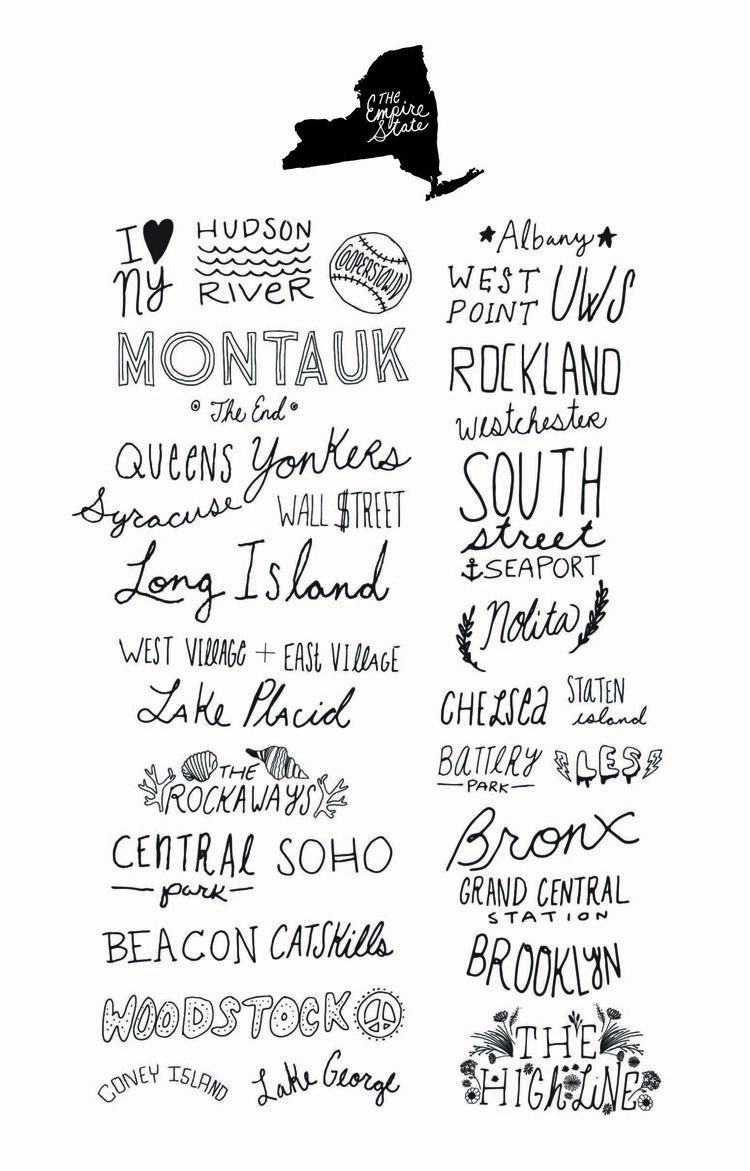 THE
Empire
State
I ♥
NY
HUDSON
RIVER
COOPERSTOWN
MONTAUK
The End
QUEENS Yonkers
Syracuse WALL $TREET
Long Island
WEST VILLAGE + EAST VILLAGE
Lake Placid
THE
ROCKAWAYS
CENTRAL
park
SOHO
BEACON CATSKills
WOODSTOCK
CONEY ISLAND Lake George
Albany
WEST
POINT
UWS
ROCKLAND
Westchester
SOUTH
street
SEAPORT
Nolita
CHELSEA
STATEN
island
BATTERY
PARK
LES
Bronx
GRAND CENTRAL
STATION
BROOKLYN
THE
HIGH LINE